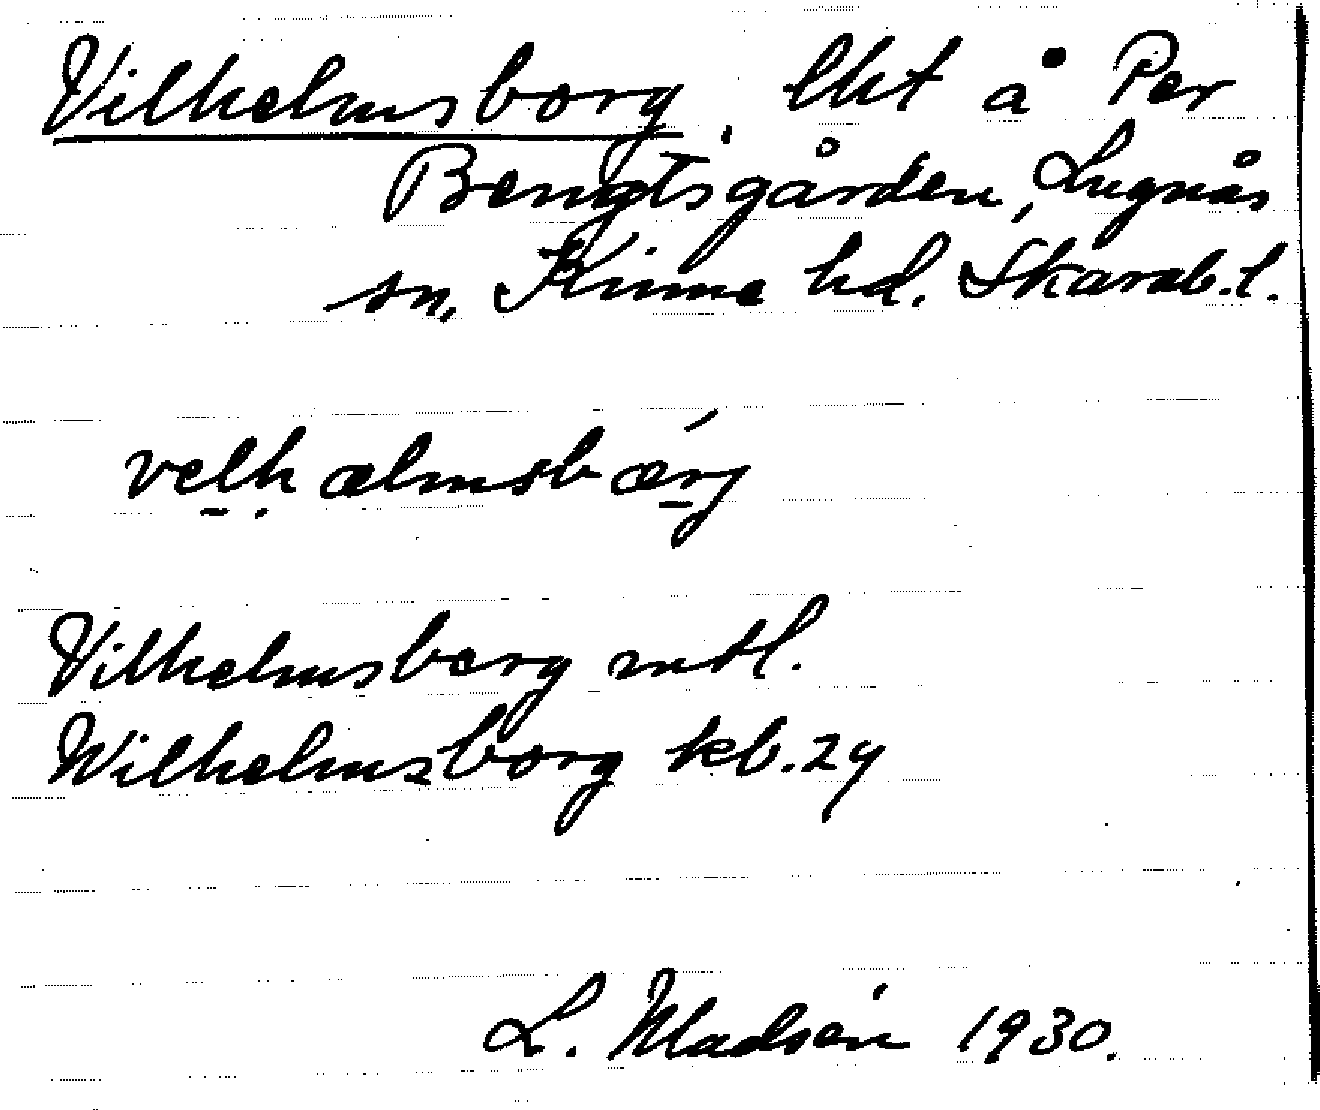 Vilhelmsborg, lht å Per
Bengtsgården, Lugnås
sn, Kinne hd. Skarab.l.
velhælmsbærj
Vilhelmsberg mtl.
Wilhelmsborg kb. 24
L. Madsén 1930.